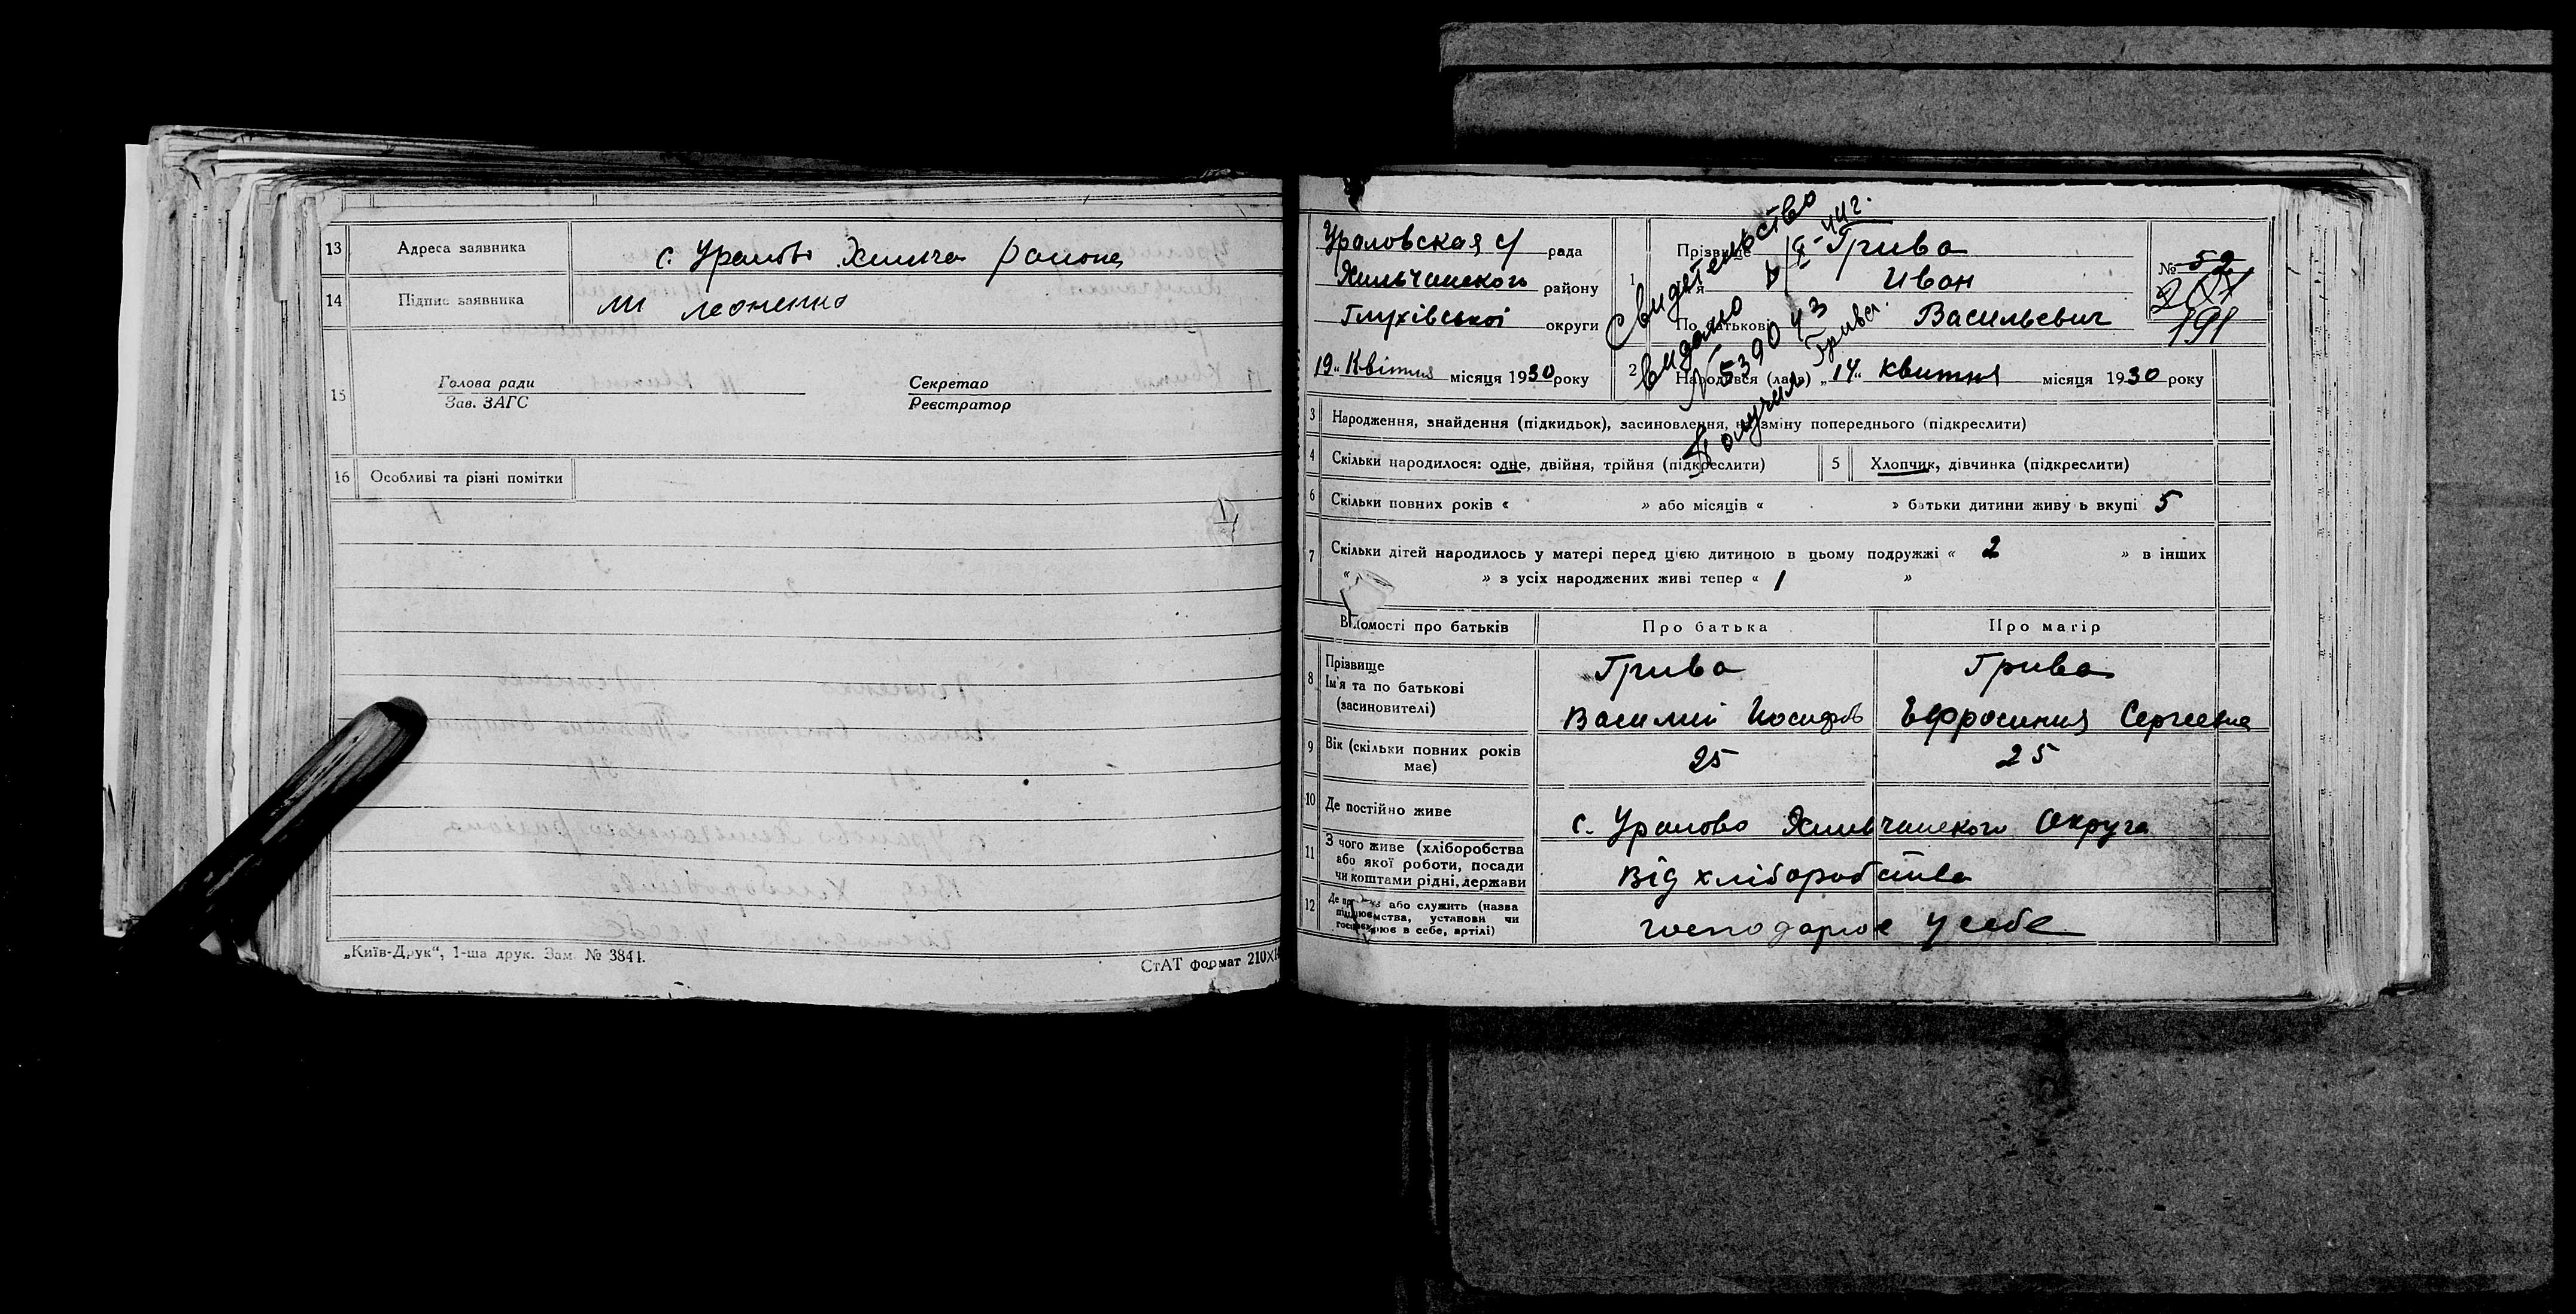 13 Адреса заявника с. Уралово Хильча района
14 Підпис заявника ли леоненко
15 Голова ради Секретар
Зав. ЗАГС Реєстратор
16 Особливі та різні помітки
„Київ-Друк“, 1-ша друк. Зам. № 3841.
СтАТ формат 210×
Ураловская с/ рада
Хильчанского району
Глухівської округи
„19„ Квітня місяця 1930 року
Свидетельство
видано
№ 539043
Получил Грива.
1 Прізвище Грива
Ім'я Иван
По батькові Васильевич
№ 52
191
2 Народився (лась) „14„ квитня місяця 1930 року
3 Народження, знайдення (підкидьок), засиновлення, на зміну попереднього (підкреслити)
4 Скільки народилося: одне, двійня, трійня (підкреслити) 5 Хлопчик, дівчинка (підкреслити)
6 Скільки повних років « » або місяців « » батьки дитини живу ь вкупі 5
7 Скільки дітей народилось у матері перед цією дитиною в цьому подружжі « 2 » в інших
« » з усіх народжених живі тепер « 1 »
Відомості про батьків Про батька Про матір
8 Прізвище Грива Грива
Ім'я та по батькові
(засиновителі) Василий Иосифов Ефросиния Сергеевна
9 Вік (скільки повних років має) 25 25
10 Де постійно живе с. Уралово Хильчанского Округа
11 З чого живе (хліборобства
або якої роботи, посади
чи коштами рідні, держави Від хліборобства
12 Де працює або служить (назва
підприємства, установи чи
господарює в себе, артілі) господарює у себе